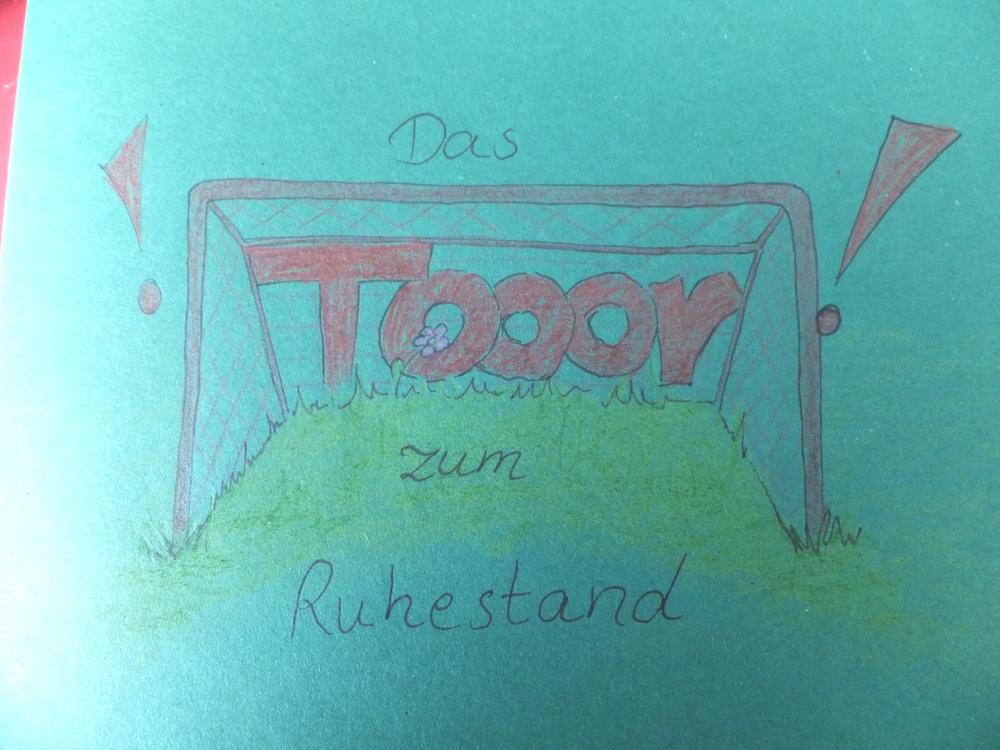 Das
Tooor
zum
Ruhestand